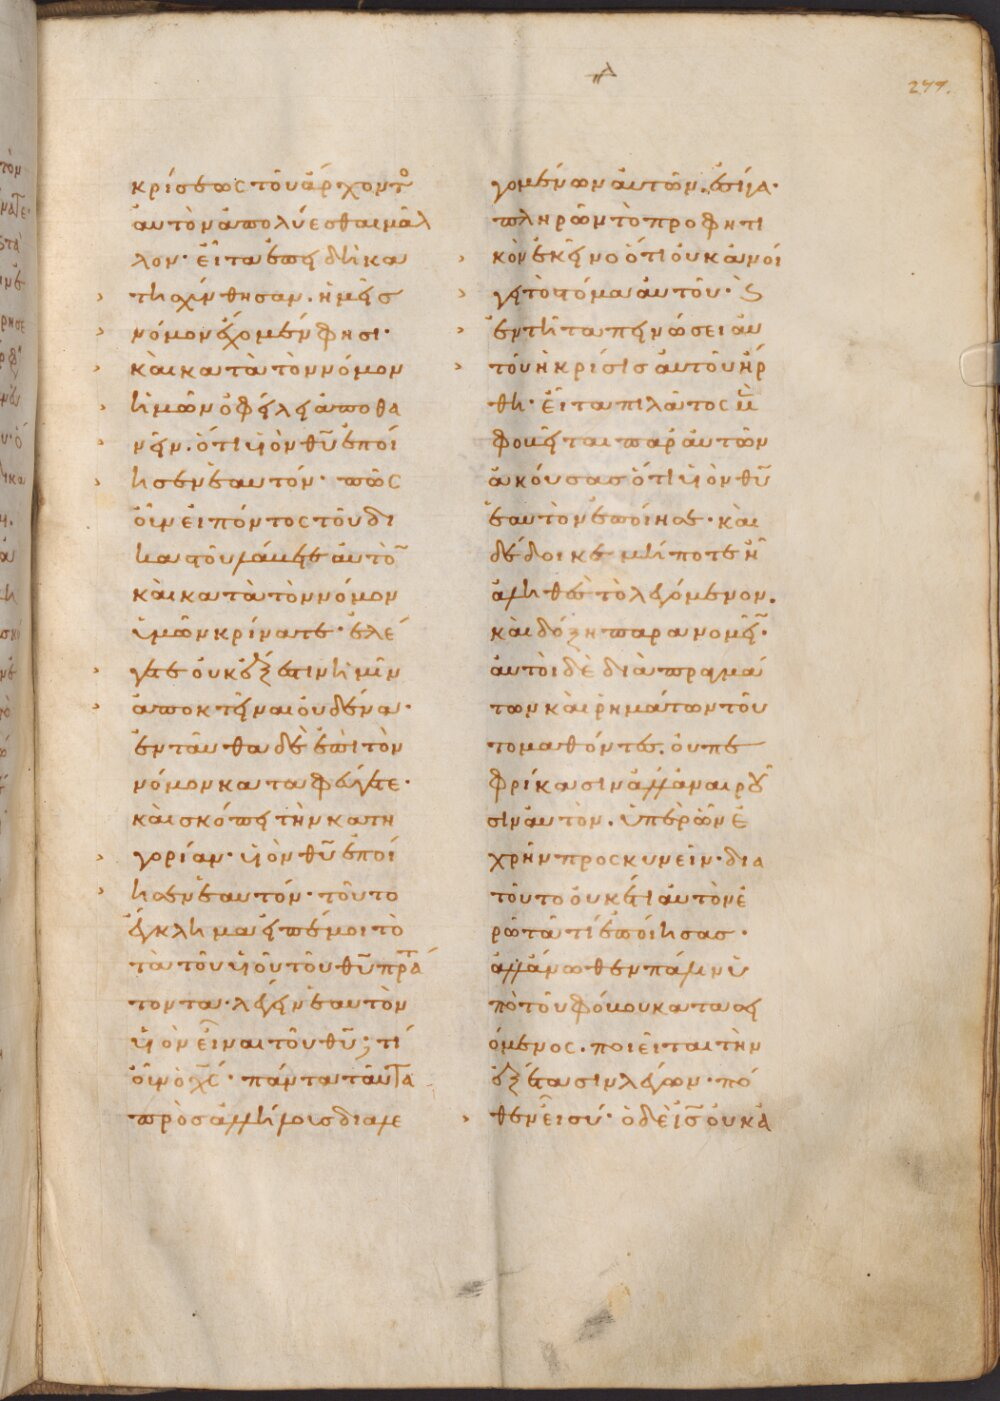 277.
κρίσεως τοῦ ἄρχοντο
αὐτὸν ἀπολύεσθαι μᾶλ
λον· εἶτα ἐπειδὴ κα
τηχύνθησαν. ἡμεῖσ
νόμον ἔχομεν φησι·
καὶ κατὰ τὸν νόμον
ἡμῶν ὀφείλει ἀποθα
νεῖν. ὅτι υἱὸν θυ ἐποί
ησεν ἑαυτόν· πῶς
οὖν εἰπόντος τοῦ δι
καστοῦ λάβετε αὐτὸ
καὶ κατὰ τὸν νόμον
ὑμῶν κρίνατε· ἐλέ
γετε οὐκ ἔξεστιν ἡμῖν
ἀποκτεῖναι οὐδένα·
ἐνταῦθα δὲ ἐπὶ τὸν
νόμον καταφεύγετε·
καὶ σκόπει τὴν κατη
γορίαν· υἱὸν θυ ἐποί
ησεν ἑαυτόν· τοῦτο
ἔγκλημα εἰπέ μοι τὸ
τὰ τοῦ υἱοῦ τοῦ θυ πράτ
τοντα· λέγειν ἑαυτὸν
υἱὸν εἶναι τοῦ θυ; τί
οὖν ὁ χς· πάντα ταῦτα
πρὸσ ἀλλήλους διαλε
γομένων αὐτῶν. ἐσίγα·
πληρῶν τὸ προφητι
κὸν ἐκεῖνο ὅτι οὐκ ἀνοί
γει τὸ στόμα αὐτοῦ· ϛ
ἐν τῆ ταπεινώσει αὐ
τοῦ ἡ κρίσισ αὐτοῦ ἤρ
θη· εἶτα πιλᾶτος μὲν
φοβεῖται παρ' αὐτῶν
ἀκούσασ ὅτι υἱὸν θυ
ἑαυτὸν ἐποίησε· καὶ
δέδοικε μήποτε ἦ
ἀληθὲσ τὸ λεγόμενον.
καὶ δόξη παρανομεῖν·
αὐτοὶ δὲ διὰ πραγμά
των καὶ ῥημάτων τοῦ
το μαθόντεσ. οὐ πε
φρίκασιν ἀλλ' ἀναιροῦ
σιν αὐτὸν. ὑπὲρ ὧν ἐ
χρῆν προσκυνεῖν· δια
τοῦτο οὐκέτι αὐτὸν ἐ
ρωτᾶ τί ἐποίησασ·
ἀλλ' ἄνωθεν πάλιν ὑ
πὸ τοῦ φόβου κατασει
όμενος. ποιεῖται τὴν
ἐξέτασιν λέγων· πό
θεν εἶ σύ· ὁ δὲ ισ οὐκ ἀ